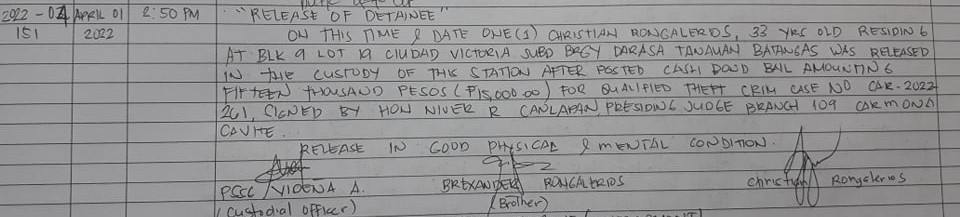 2022-04 APRIL 01 2:50 PM "RELEASE OF DETAINEE"
151 2022 ON THIS TIME & DATE ONE (1) CHRISTIAN RONGALERIOS, 33 YRS OLD RESIDING
AT BLK 9 LOT 19 CIUDAD VICTORIA SUBD BRGY DARASA TANAUAN BATANGAS WAS RELEASED
IN THE CUSTODY OF THIS STATION AFTER POSTED CASH BOND BAIL AMOUNTING
FIFTEEN THOUSAND PESOS (₱15,000.00) FOR QUALIFIED THEFT CRIM CASE NO CAR-2022
261, SIGNED BY HON NIVER R CANLAPAN, PRESIDING JUDGE BRANCH 109 CARMONA
CAVITE.
RELEASE IN GOOD PHYSICAL & MENTAL CONDITION.
VIDEÑA A. BREXANDER RONGALERIOS Christian Rongalerios
(Custodial Officer) (Brother)